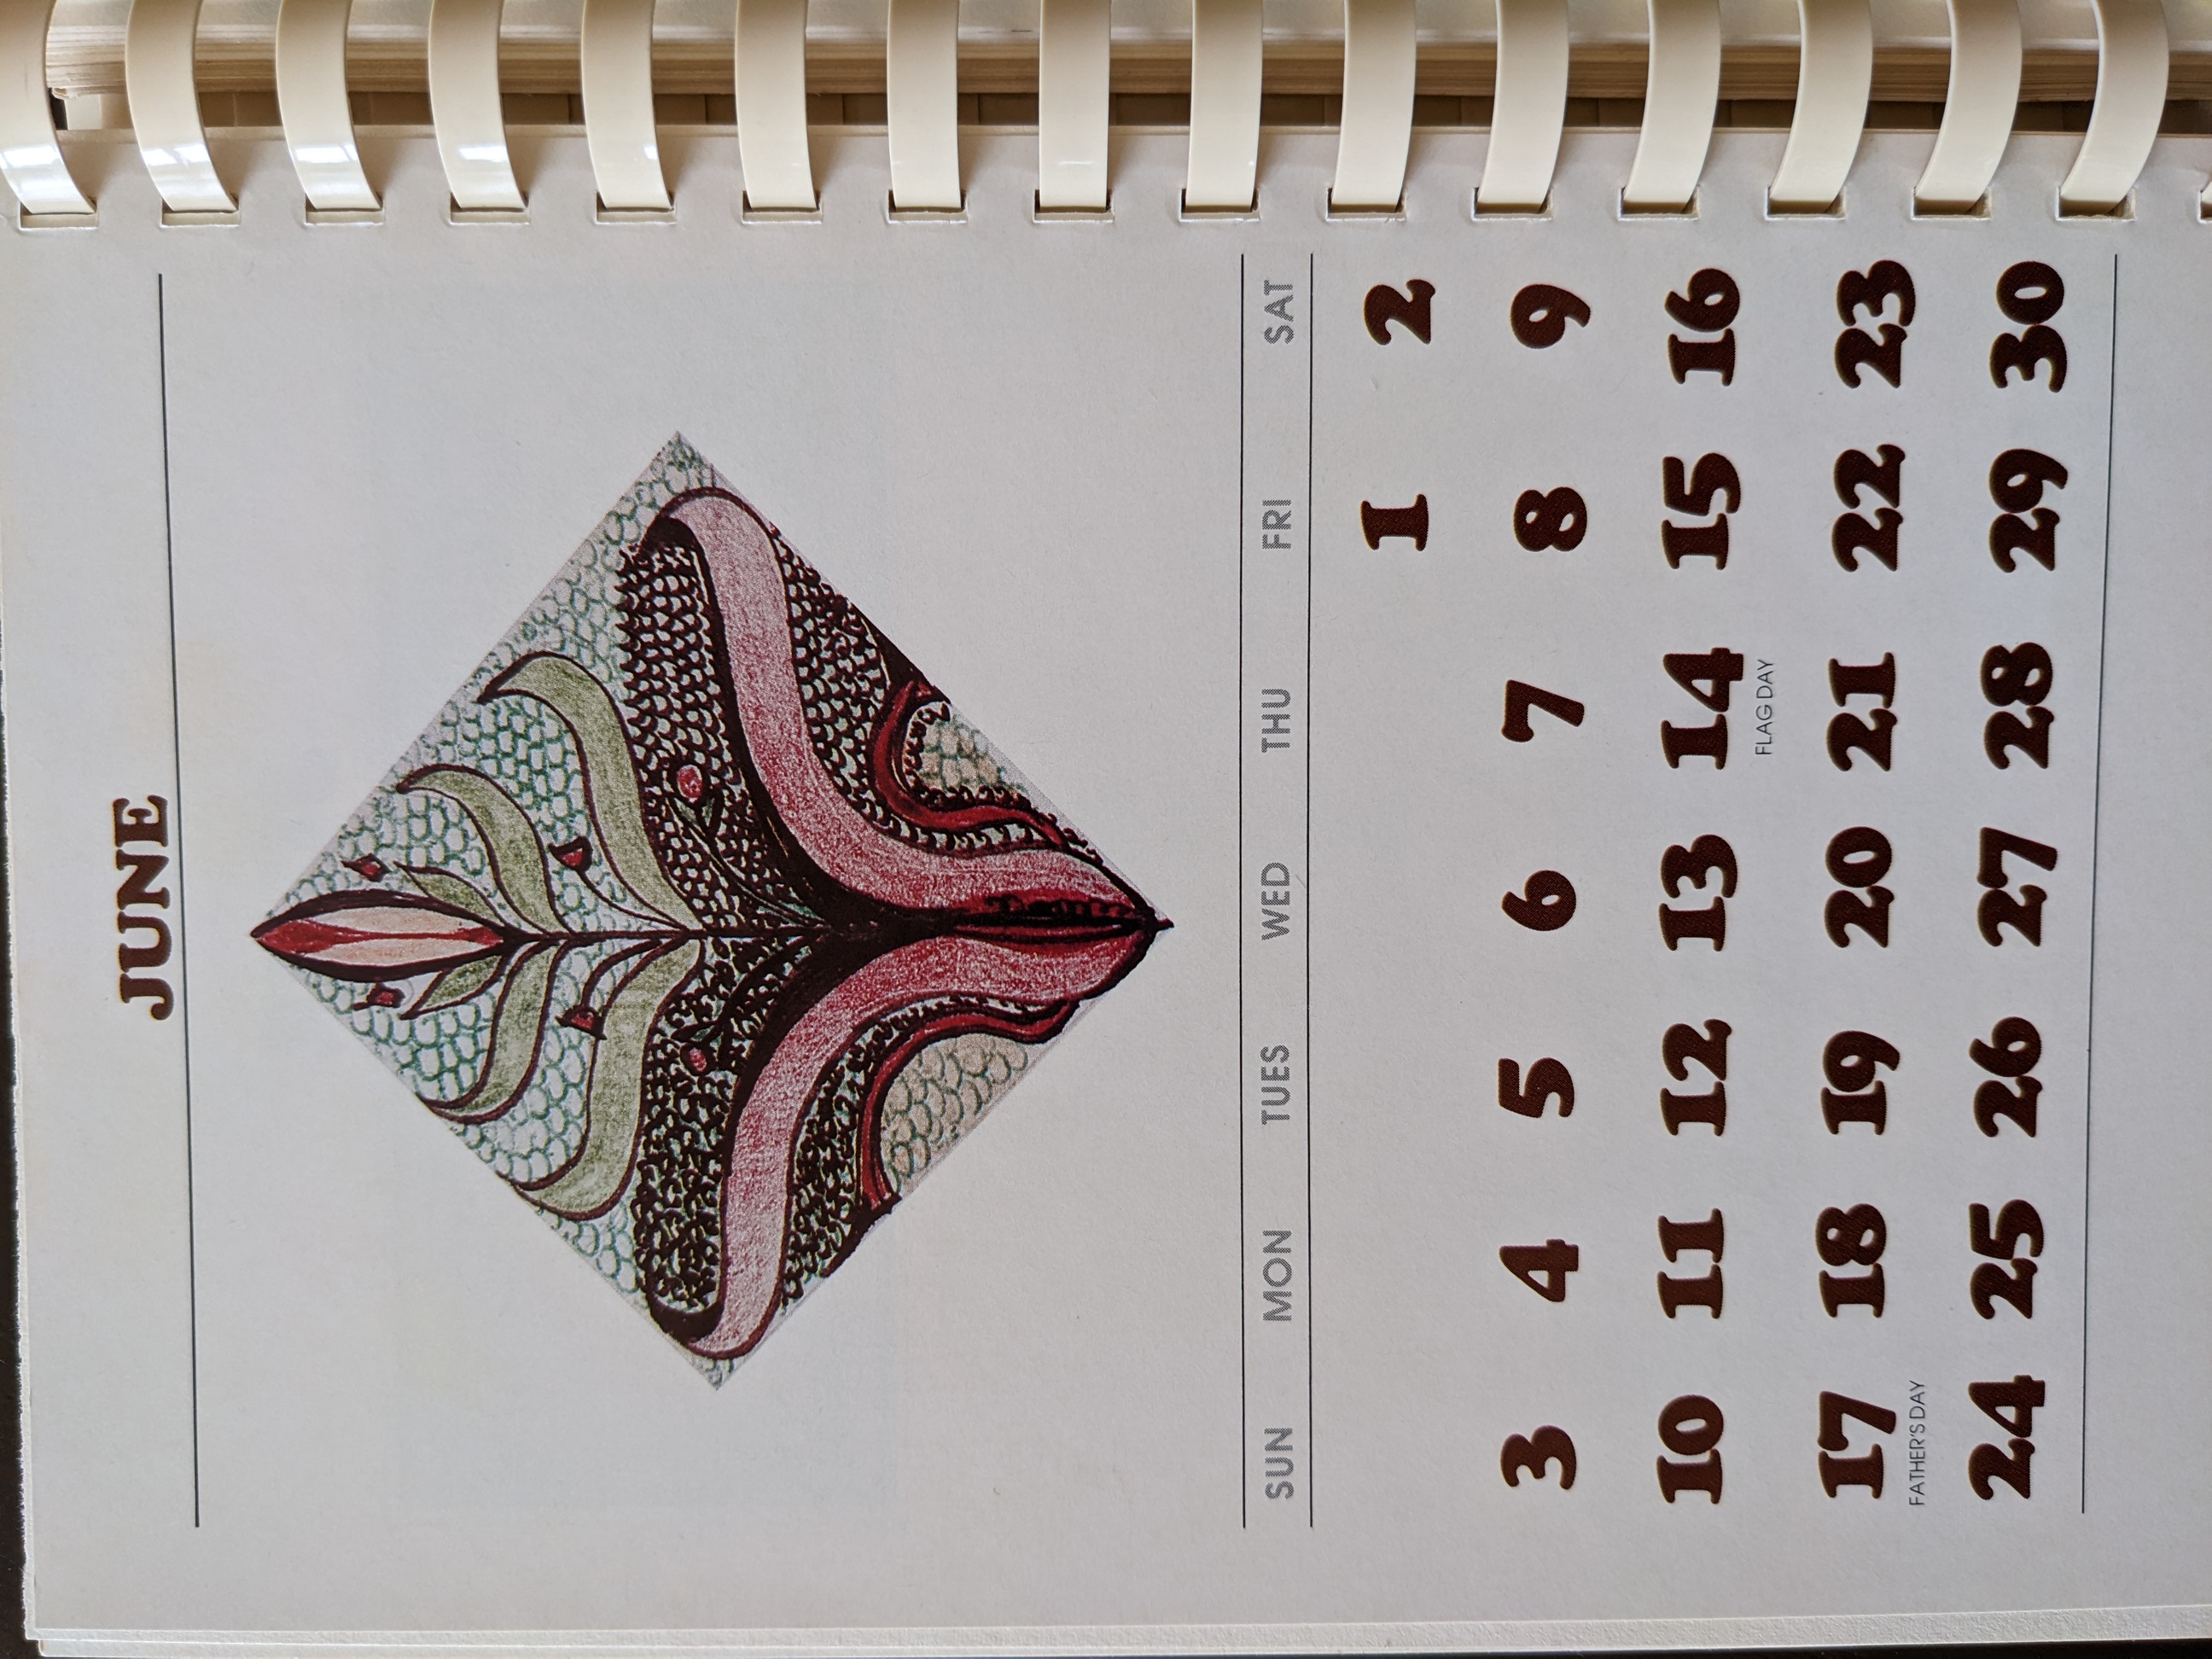 JUNE
SUN MON TUES WED THU FRI SAT
1 2
3 4 5 6 7 8 9
10 11 12 13 14 15 16
FLAG DAY
17 18 19 20 21 22 23
FATHER'S DAY
24 25 26 27 28 29 30